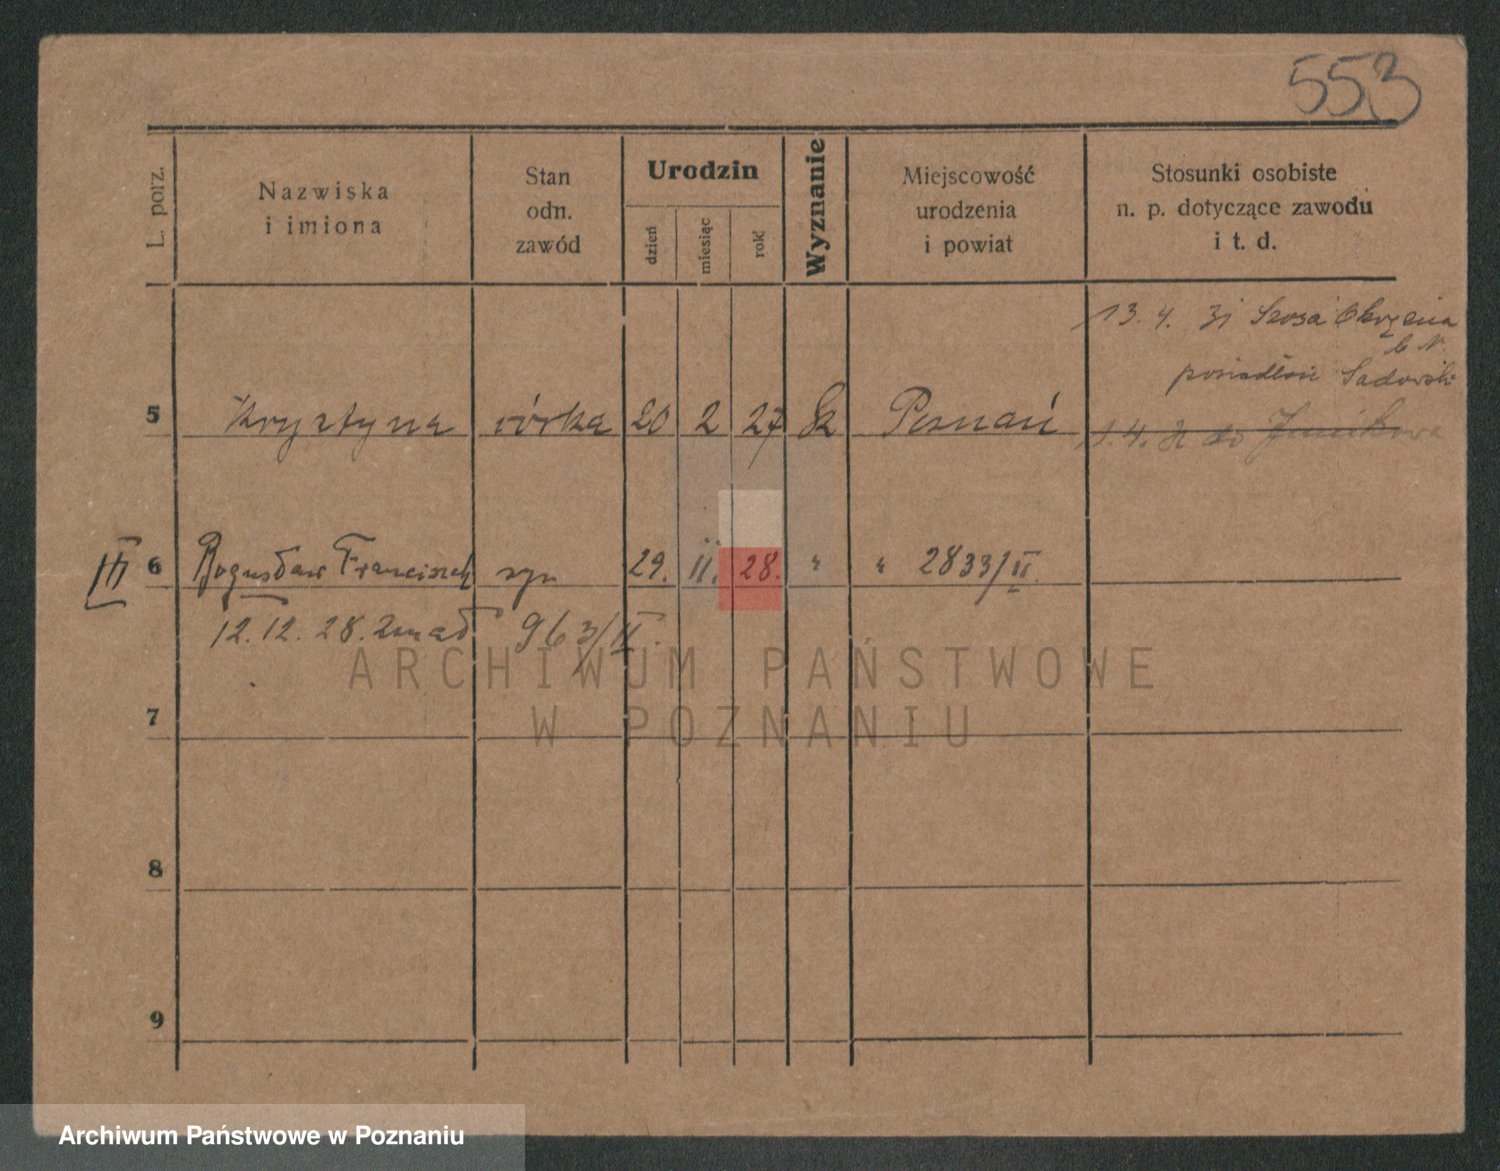 553
L. porz.
Nazwiska
i imiona
Stan
odn.
zawód
Urodzin
dzień
miesiąc
rok
Wyznanie
Miejscowość
urodzenia
i powiat
Stosunki osobiste
n. p. dotyczące zawodu
i t. d.
13. 4. 31 Szosa Okrężna
posiadłość Sadowski
5 Krystyna córka 20 2 27 Poznań
1. 4. do Junikowa
III 6 Bogusław Franciszek syn 29. II. 28. " " 2833/II
12. 12. 28. zmarł 963/II.
ARCHIWUM PAŃSTWOWE
W POZNANIU
7
8
9
Archiwum Państwowe w Poznaniu